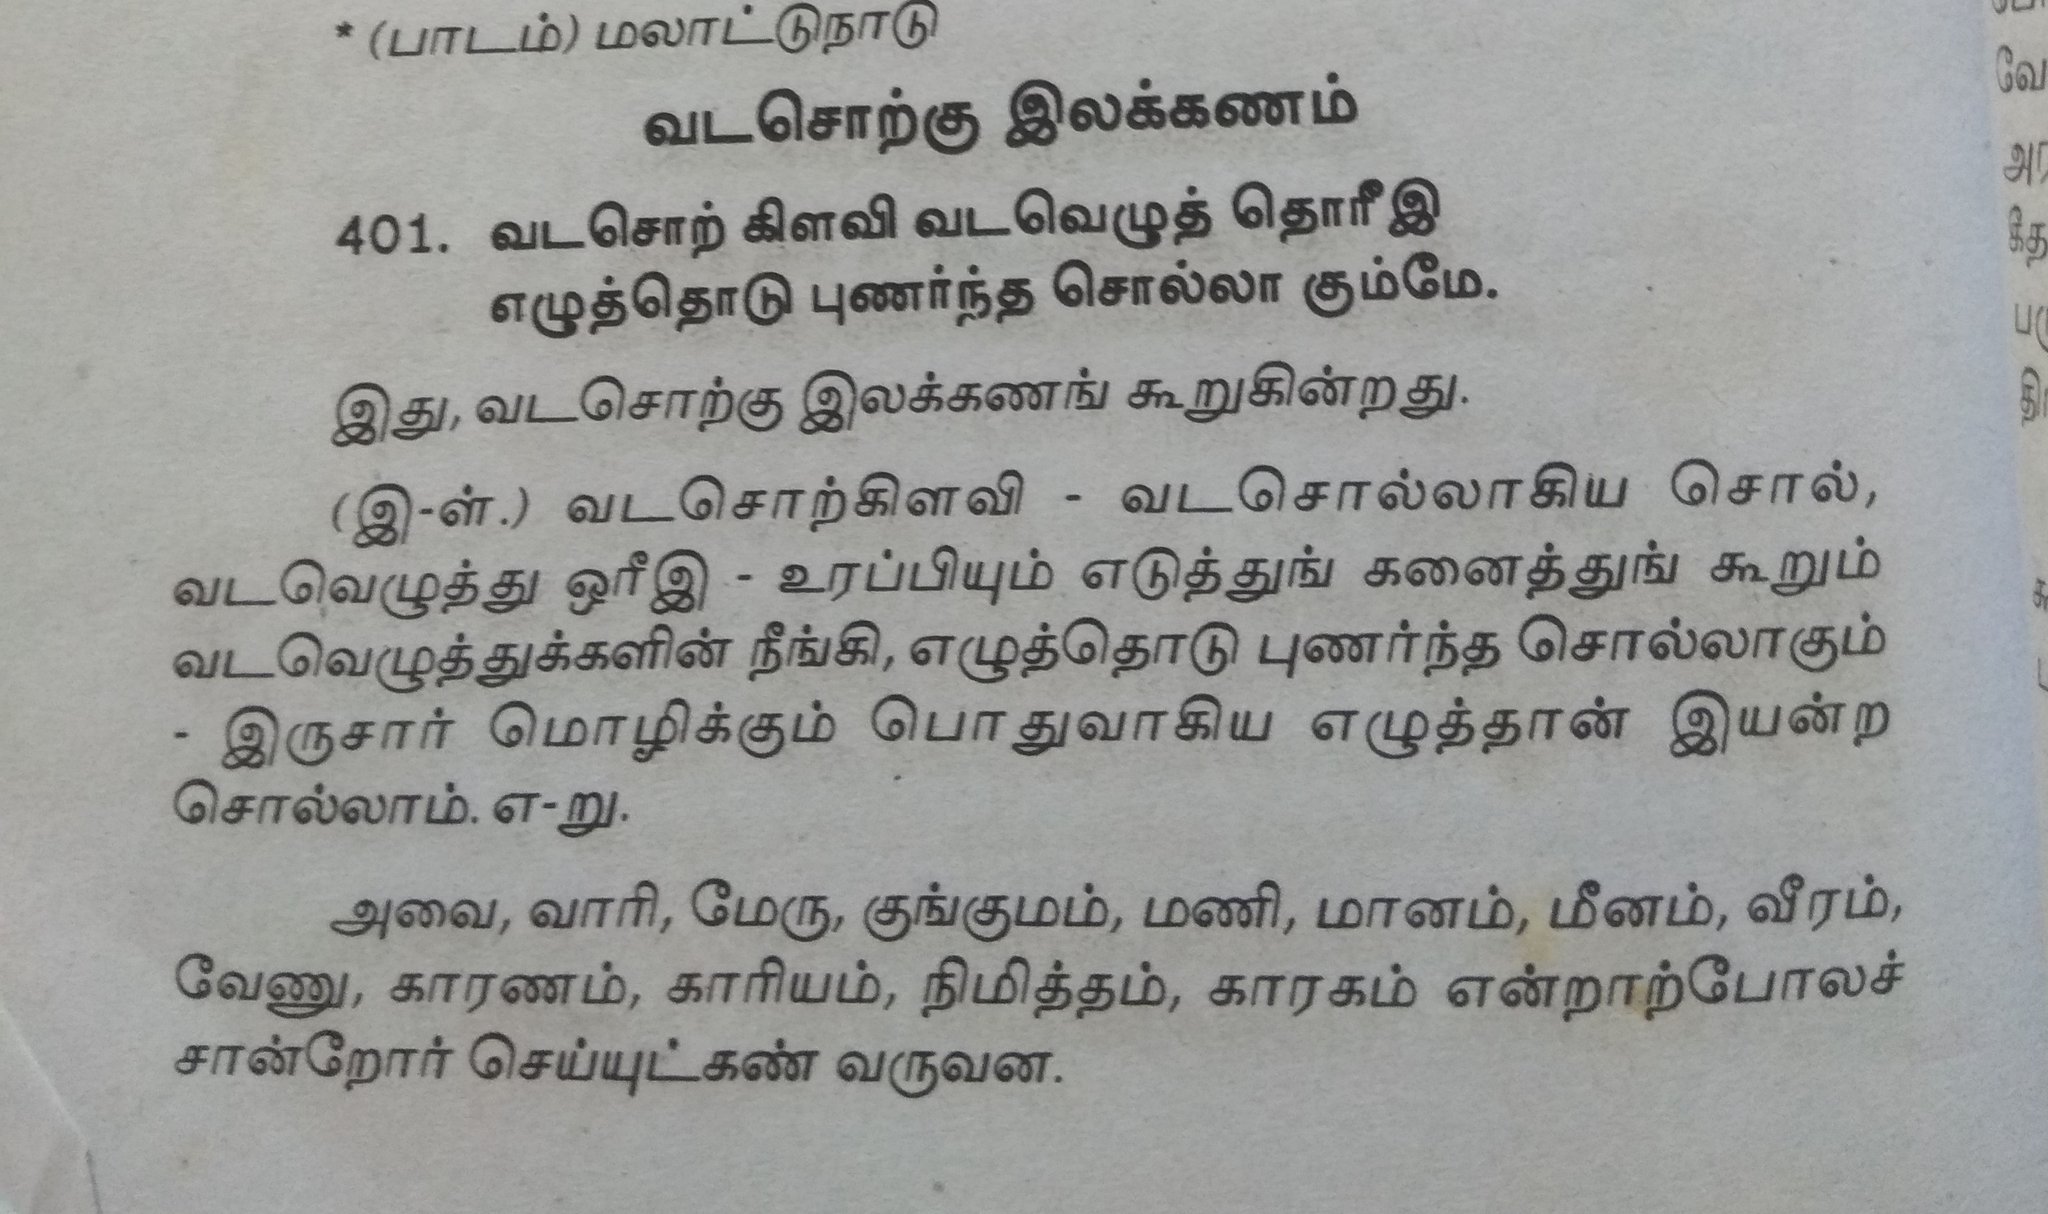 * (பாடம்) மலாட்டுநாடு
வடசொற்கு இலக்கணம்
401. வடசொற் கிளவி வடவெழுத் தொரீஇ
எழுத்தொடு புணர்ந்த சொல்லா கும்மே.
இது, வடசொற்கு இலக்கணங் கூறுகின்றது.
(இ-ள்.) வடசொற்கிளவி - வடசொல்லாகிய சொல்,
வடவெழுத்து ஒரீஇ - உரப்பியும் எடுத்துங் கனைத்துங் கூறும்
வடவெழுத்துக்களின் நீங்கி, எழுத்தொடு புணர்ந்த சொல்லாகும்
- இருசார் மொழிக்கும் பொதுவாகிய எழுத்தான் இயன்ற
சொல்லாம். எ-று.
அவை, வாரி, மேரு, குங்குமம், மணி, மானம், மீனம், வீரம்,
வேணு, காரணம், காரியம், நிமித்தம், காரகம் என்றாற்போலச்
சான்றோர் செய்யுட்கண் வருவன.